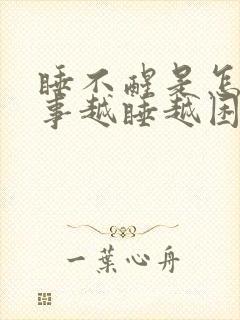 睡不醒是怎
事越睡越困
一葉心舟